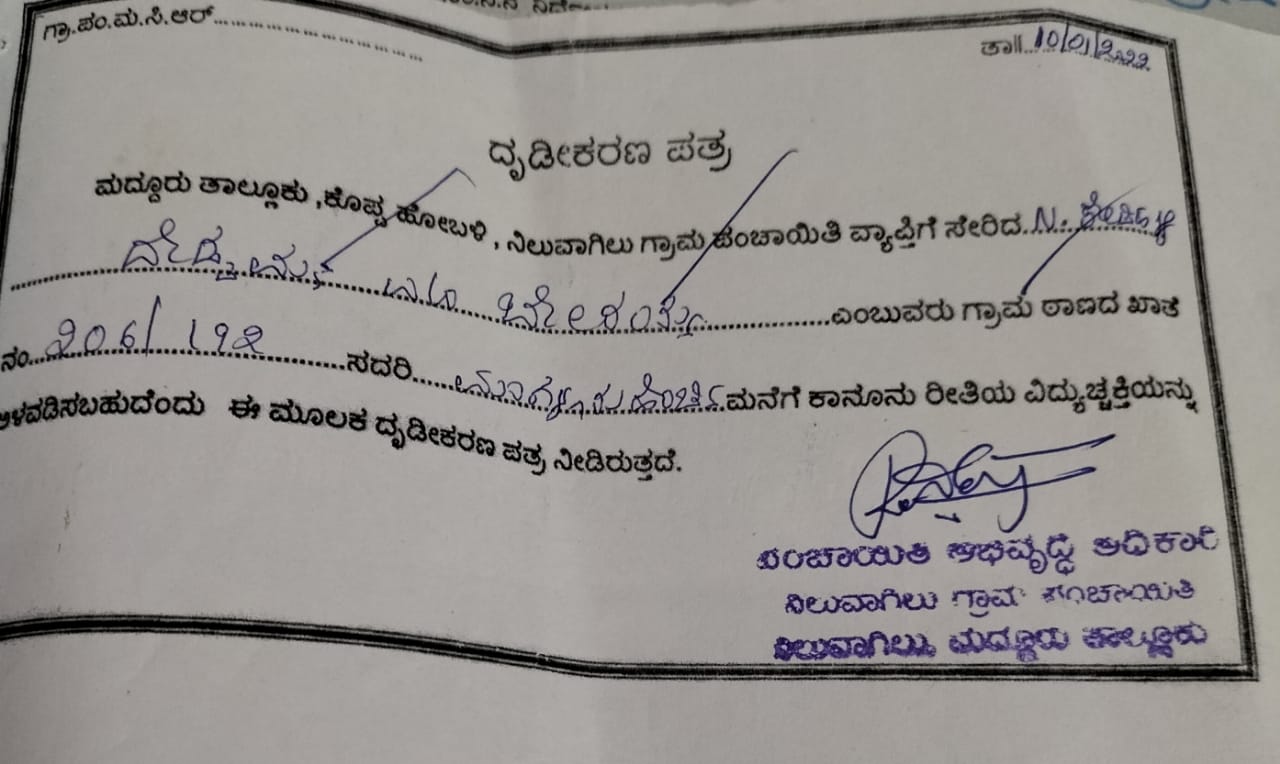 ಗ್ರಾ.ಪಂ.ಮ.ಸಿ.ಆರ್........................................
ತಾ||..10/01/2022
ದೃಡೀಕರಣ ಪತ್ರ
ಮದ್ದೂರು ತಾಲ್ಲೂಕು ,ಕೊಪ್ಪ ಹೋಬಳಿ , ನಿಲುವಾಗಿಲು ಗ್ರಾಮ ಪಂಚಾಯಿತಿ ವ್ಯಾಪ್ತಿಗೆ ಸೇರಿದ..N.
ಎಂಬುವರು ಗ್ರಾಮ ಠಾಣದ ಖಾತೆ
ನಂ...೨೦6/ 1೪೨ ಸದರಿ ಮನೆಗೆ ಕಾನೂನು ರೀತಿಯ ವಿದ್ಯುಚ್ಚಕ್ತಿಯನ್ನು
ಅಳವಡಿಸಬಹುದೆಂದು ಈ ಮೂಲಕ ದೃಡೀಕರಣ ಪತ್ರ ನೀಡಿರುತ್ತದೆ.
ಪಂಚಾಯಿತಿ ಅಭಿವೃದ್ಧಿ ಅಧಿಕಾರಿ
ನಿಲುವಾಗಿಲು ಗ್ರಾಮ ಪಂಚಾಯಿತಿ
ನಿಲುವಾಗಿಲು, ಮದ್ದೂರು ತಾಲ್ಲೂಕು